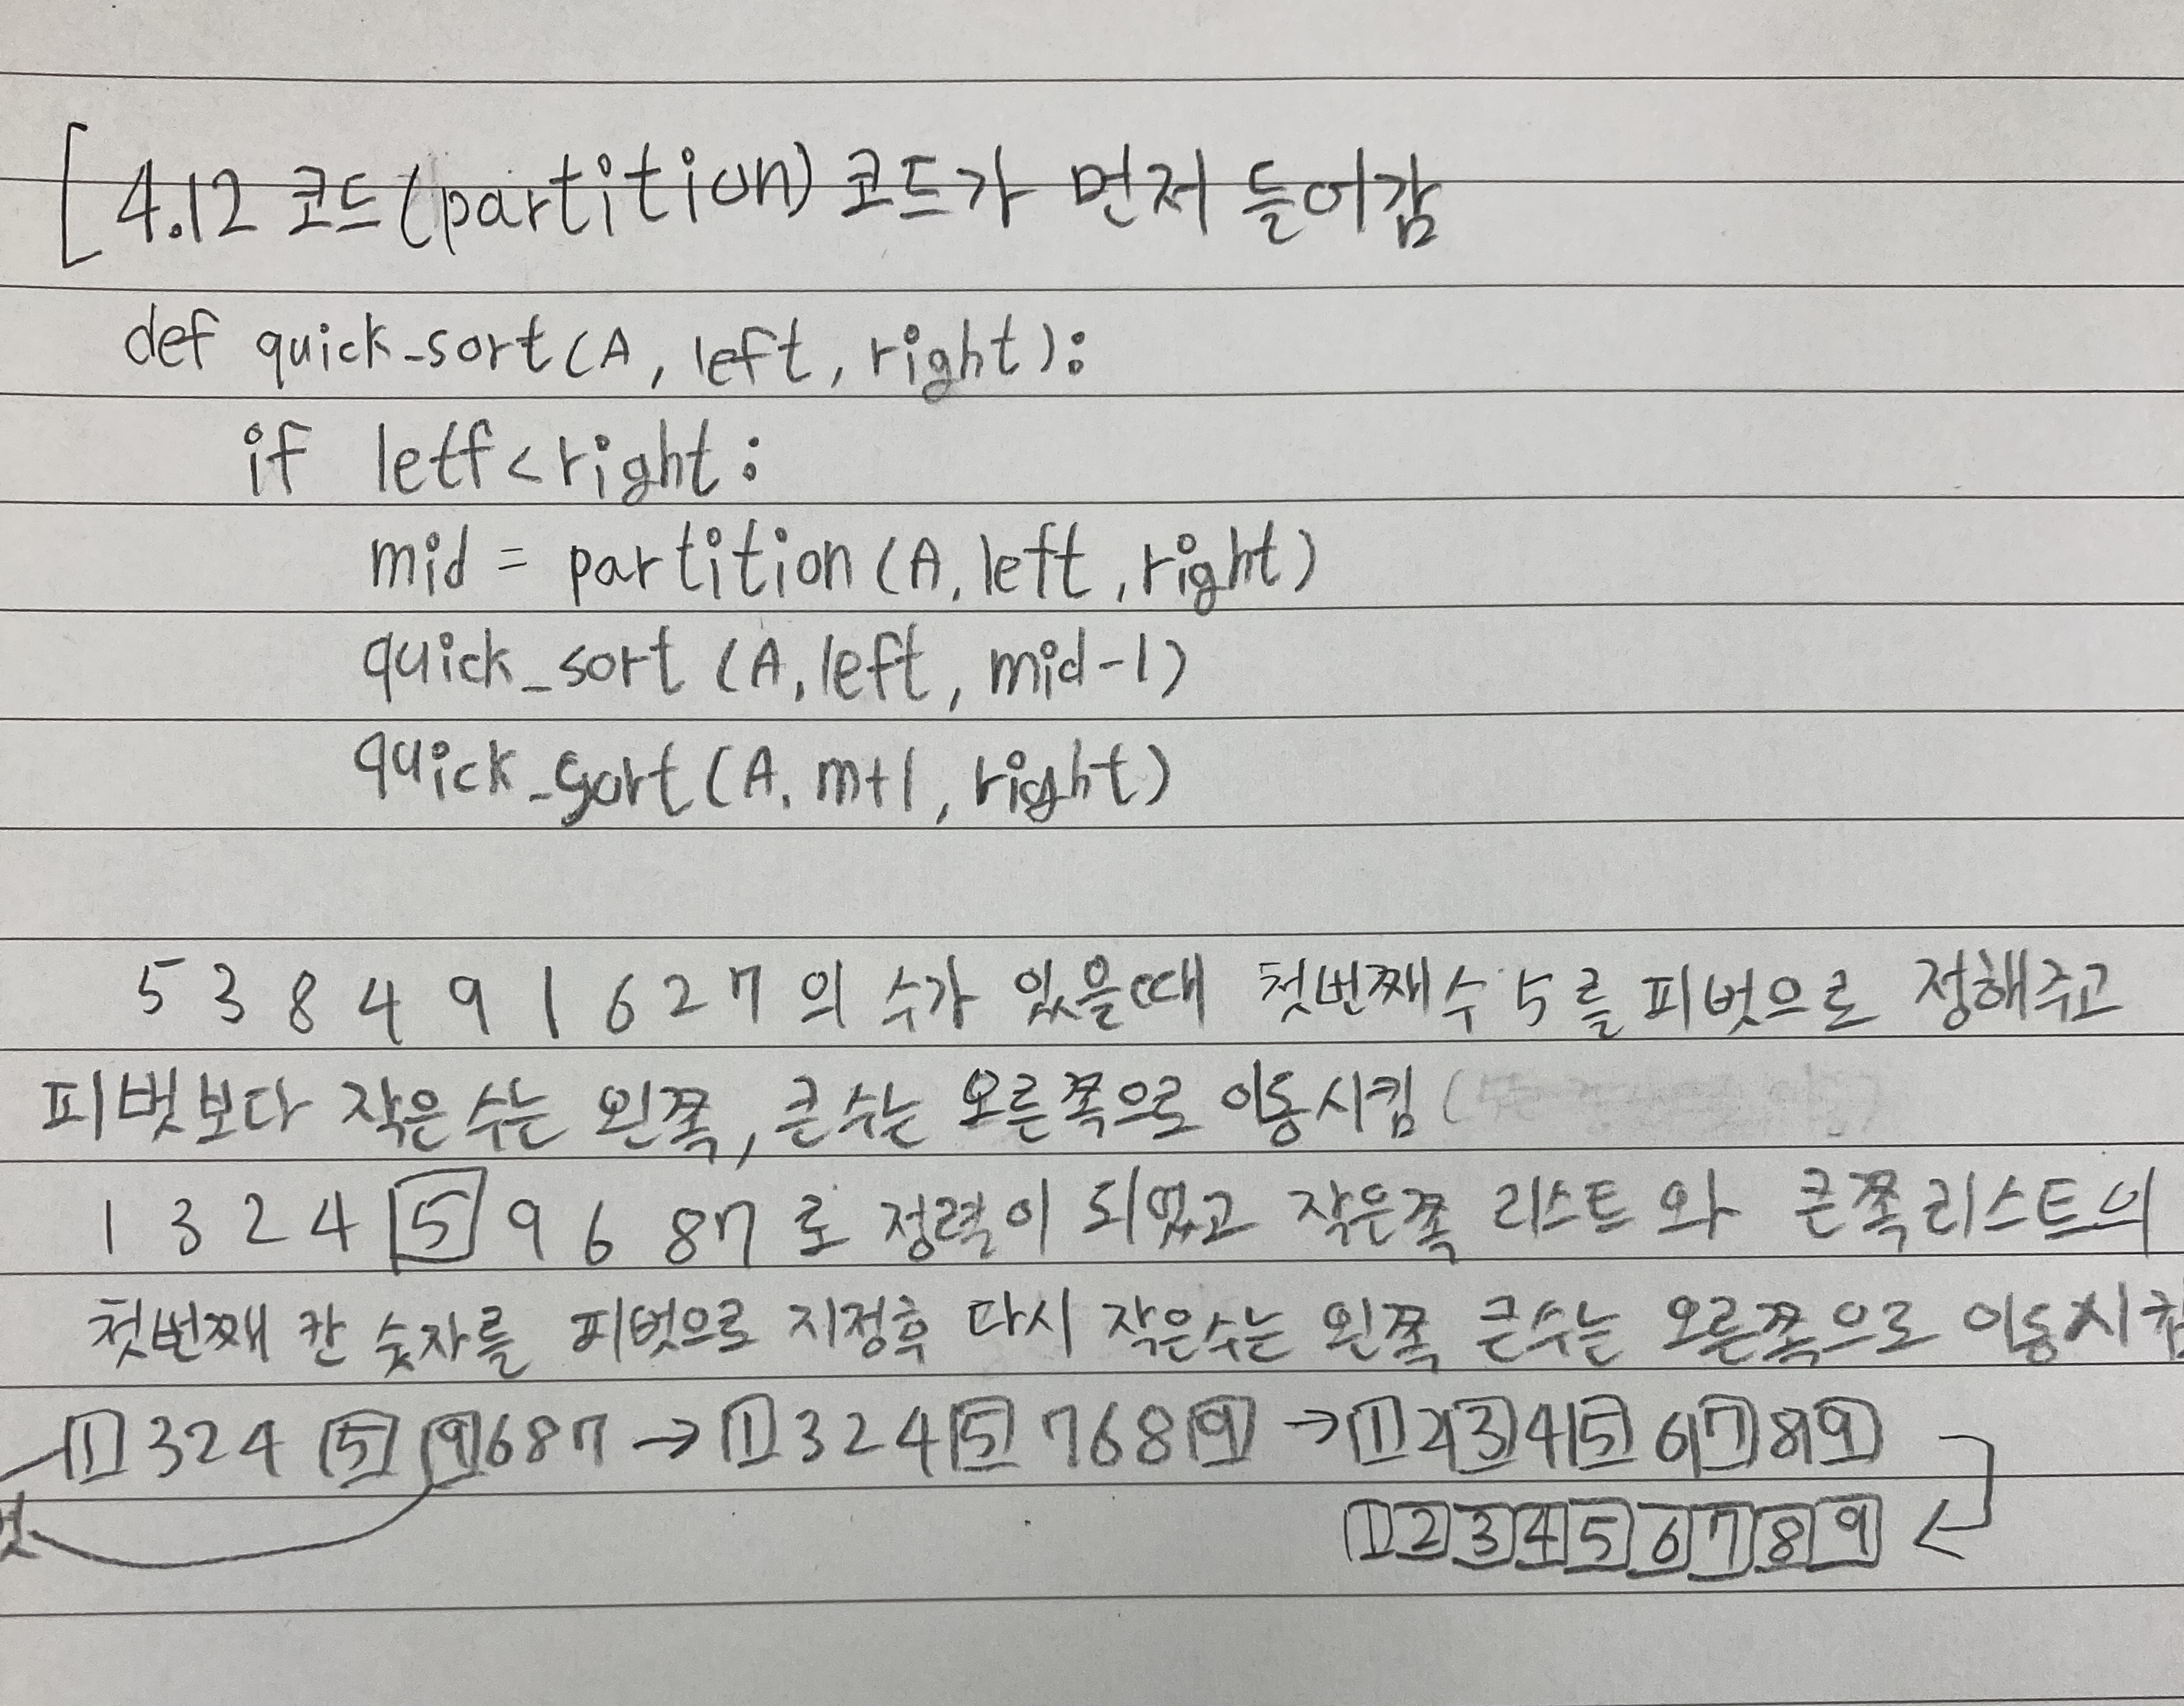 [ 4.12 코드(partition) 코드가 먼저 들어감
def quick_sort(A, left, right):
if letf<right:
mid = partition(A, left, right)
quick_sort (A, left, mid-1)
quick_sort(A, m+1, right)
5 3 8 4 9 1 6 2 7 의 수가 있을때 첫번째수 5를 피벗으로 정해주고
피벗보다 작은수는 왼쪽, 큰수는 오른쪽으로 이동시킴 (
1 3 2 4 5 9 6 8 7 로 정력이 되었고 작은쪽 리스트와 큰쪽리스트의
첫번째 칸 숫자를 피벗으로 지정후 다시 작은수는 왼쪽 큰수는 오른쪽으로 이동시킴
1 3 2 4 5 9 6 8 7 → 1 3 2 4 5 7 6 8 9 → 1 2 3 4 5 6 7 8 9
벗 1 2 3 4 5 6 7 8 9